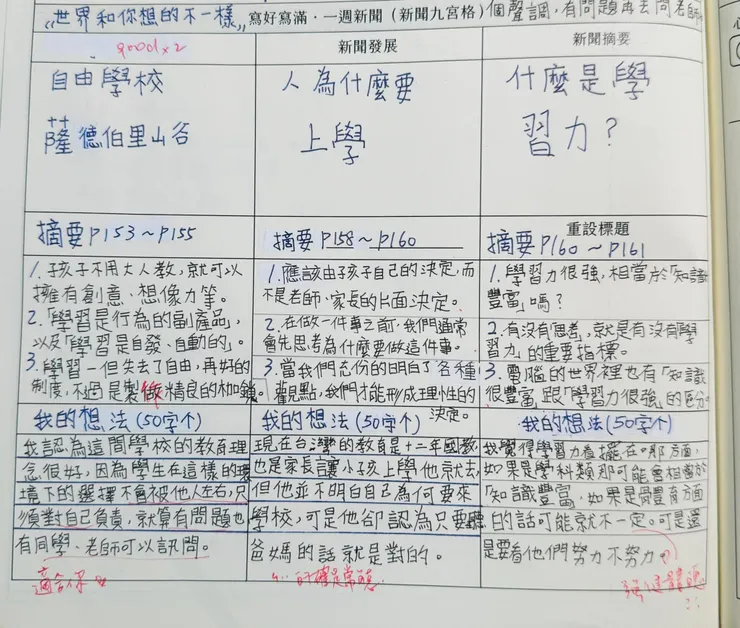 “世界和你想的不一樣”寫好寫滿．一週新聞（新聞九宮格）個聲調,有問題再去問老師
good×2
新聞發展
新聞摘要
自由學校
薩德伯里山谷
人為什麼要
上學
什麼是學
習力？
摘要P153～P155
摘要P158～P160
重設標題
摘要P160～P161
1.孩子不用大人教，就可以
擁有創意、想像力等。
2.「學習是行為的副產品」，
以及「學習是自發、自動的」。
3.學習一但失去了自由，再好的
制度，不過是製做精良的枷鎖。
1.應該由孩子自己的決定，而
不是老師、家長的片面決定。
2.在做一件事之前，我們通常
會先思考為什麼要做這件事。
3.當我們充份的明白了各種
觀點，我們才能形成理性的
決定。
1.學習力很強，相當於「知識
豐富」嗎？
2.有沒有思考，就是有沒有學
習力」的重要指標。
3.電腦的世界裡也有「知識
很豐富」跟「學習力很強」的區分。
我的想法(50字个)
我認為這間學校的教育理
念很好，因為學生在這樣的環
境下的選擇不會被他人左右，只
須對自己負責，就算有問題也
有同學、老師可以訊問。
適合你
我的想法(50字个)
現在台灣的教育是十二年國教，
也是家長讓小孩上學他就去，
但他並不明白自己為何要來
學校，可是他卻認為只要聽
爸媽的話就是對的。
的確是常聽
我的想法(50字个)
我覺得學習力看擺在哪方面，
如果是學科類那可能會相當於
「知識豐富，如果是體育方面
的話可能就不一定。可是還
是要看他們努力不努力。